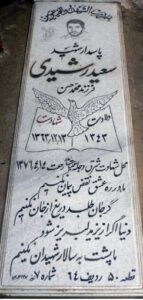 پاسدار شهید
سعید رشیدی
فرزند محمد حسن
ولادت شهادت
۱۳۴۳ ۱۳۶۳/۱۲/۱۳
محل شهادت شرق دجله
ما در ره عشق نقض پیمان نکنیم
گر جان طلبد دریغ از جان نکنیم
دنیا اگر از یزید لبریز شود
ما پشت به سالار شهیدان نکنیم
قطعه ۵۰ ردیف ۶۴ شماره ۷